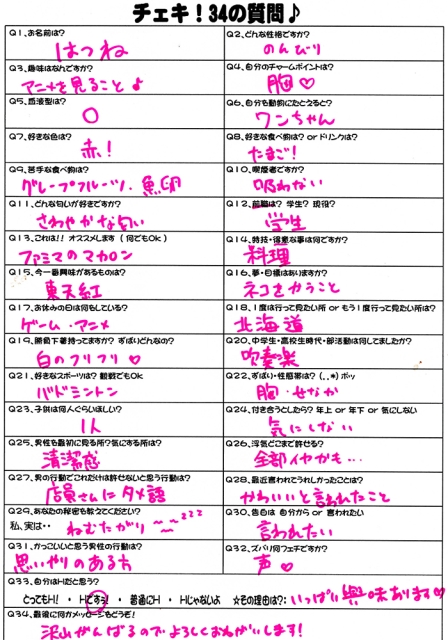 チェキ!34の質問♪
Q1、お名前は?
はつね
Q2、どんな性格ですか?
のんびり
Q3、趣味はなんですか?
アニメを見ること♪
Q4、自分のチャームポイントは?
胸♡
Q5、血液型は?
O
Q6、自分を動物にたとると?
ワンちゃん
Q7、好きな色は?
赤!
Q8、好きな食べ物は? or ドリンクは?
たまご!
Q9、苦手な食べ物は?
グレープフルーツ、魚卵
Q10、喫煙者ですか?
吸わない
Q11、どんな匂いが好きですか?
さわやかな匂い
Q12、前職は? 学生? 現役?
学生
Q13、これは!! オススメします (何でもOk)
ファミマのマカロン
Q14、特技・得意な事は何ですか?
料理
Q15、今一番興味があるものは?
東天紅
Q16、夢・目標はありますか?
ネコをかうこと
Q17、お休みの日は何をしている?
ゲーム・アニメ
Q18、1度は行って見たい所 or もう1度行って見たい所は?
北海道
Q19、勝負下着持ってますか? ずばりどんなの?
白のフリフリ♡
Q20、中学生・高校生時代・部活動は何してましたか?
吹奏楽
Q21、好きなスポーツは? 観戦でもOK
バドミントン
Q22、ずばり・性感帯は? (..*)ポッ
胸・せなか
Q23、子供は何人ぐらいほしい?
1人
Q24、付き合うとしたら? 年上 or 年下 or 気にしない
気にしない
Q25、男性を最初に見る所?気にする所は?
清潔感
Q26、浮気どこまで許せる?
全部イヤかも…
Q27、男の行動でこれだけは許せないと思う行動は?
店員さんにタメ語
Q28、最近言われてうれしかったことは?
かわいいと言われたこと
Q29、あなたの秘密を教えてください?
私、実は・・ ねむたがり 〜〜zzz
Q30、告白は 自分から or 言われたい
言われたい
Q31、かっこいいと思う男性の行動は?
思いやりのある方
Q32、ズバリ何フェチですか?
声♡
Q33、自分はHだと思う?
とってもH!! ・ Hですぅ! ・ 普通にH ・ Hじゃないよ ☆その理由は?: いっぱい興味あります♡
Q34、最後に何かメッセージをどうぞ!
沢山がんばるのでよろしくおねがいします!